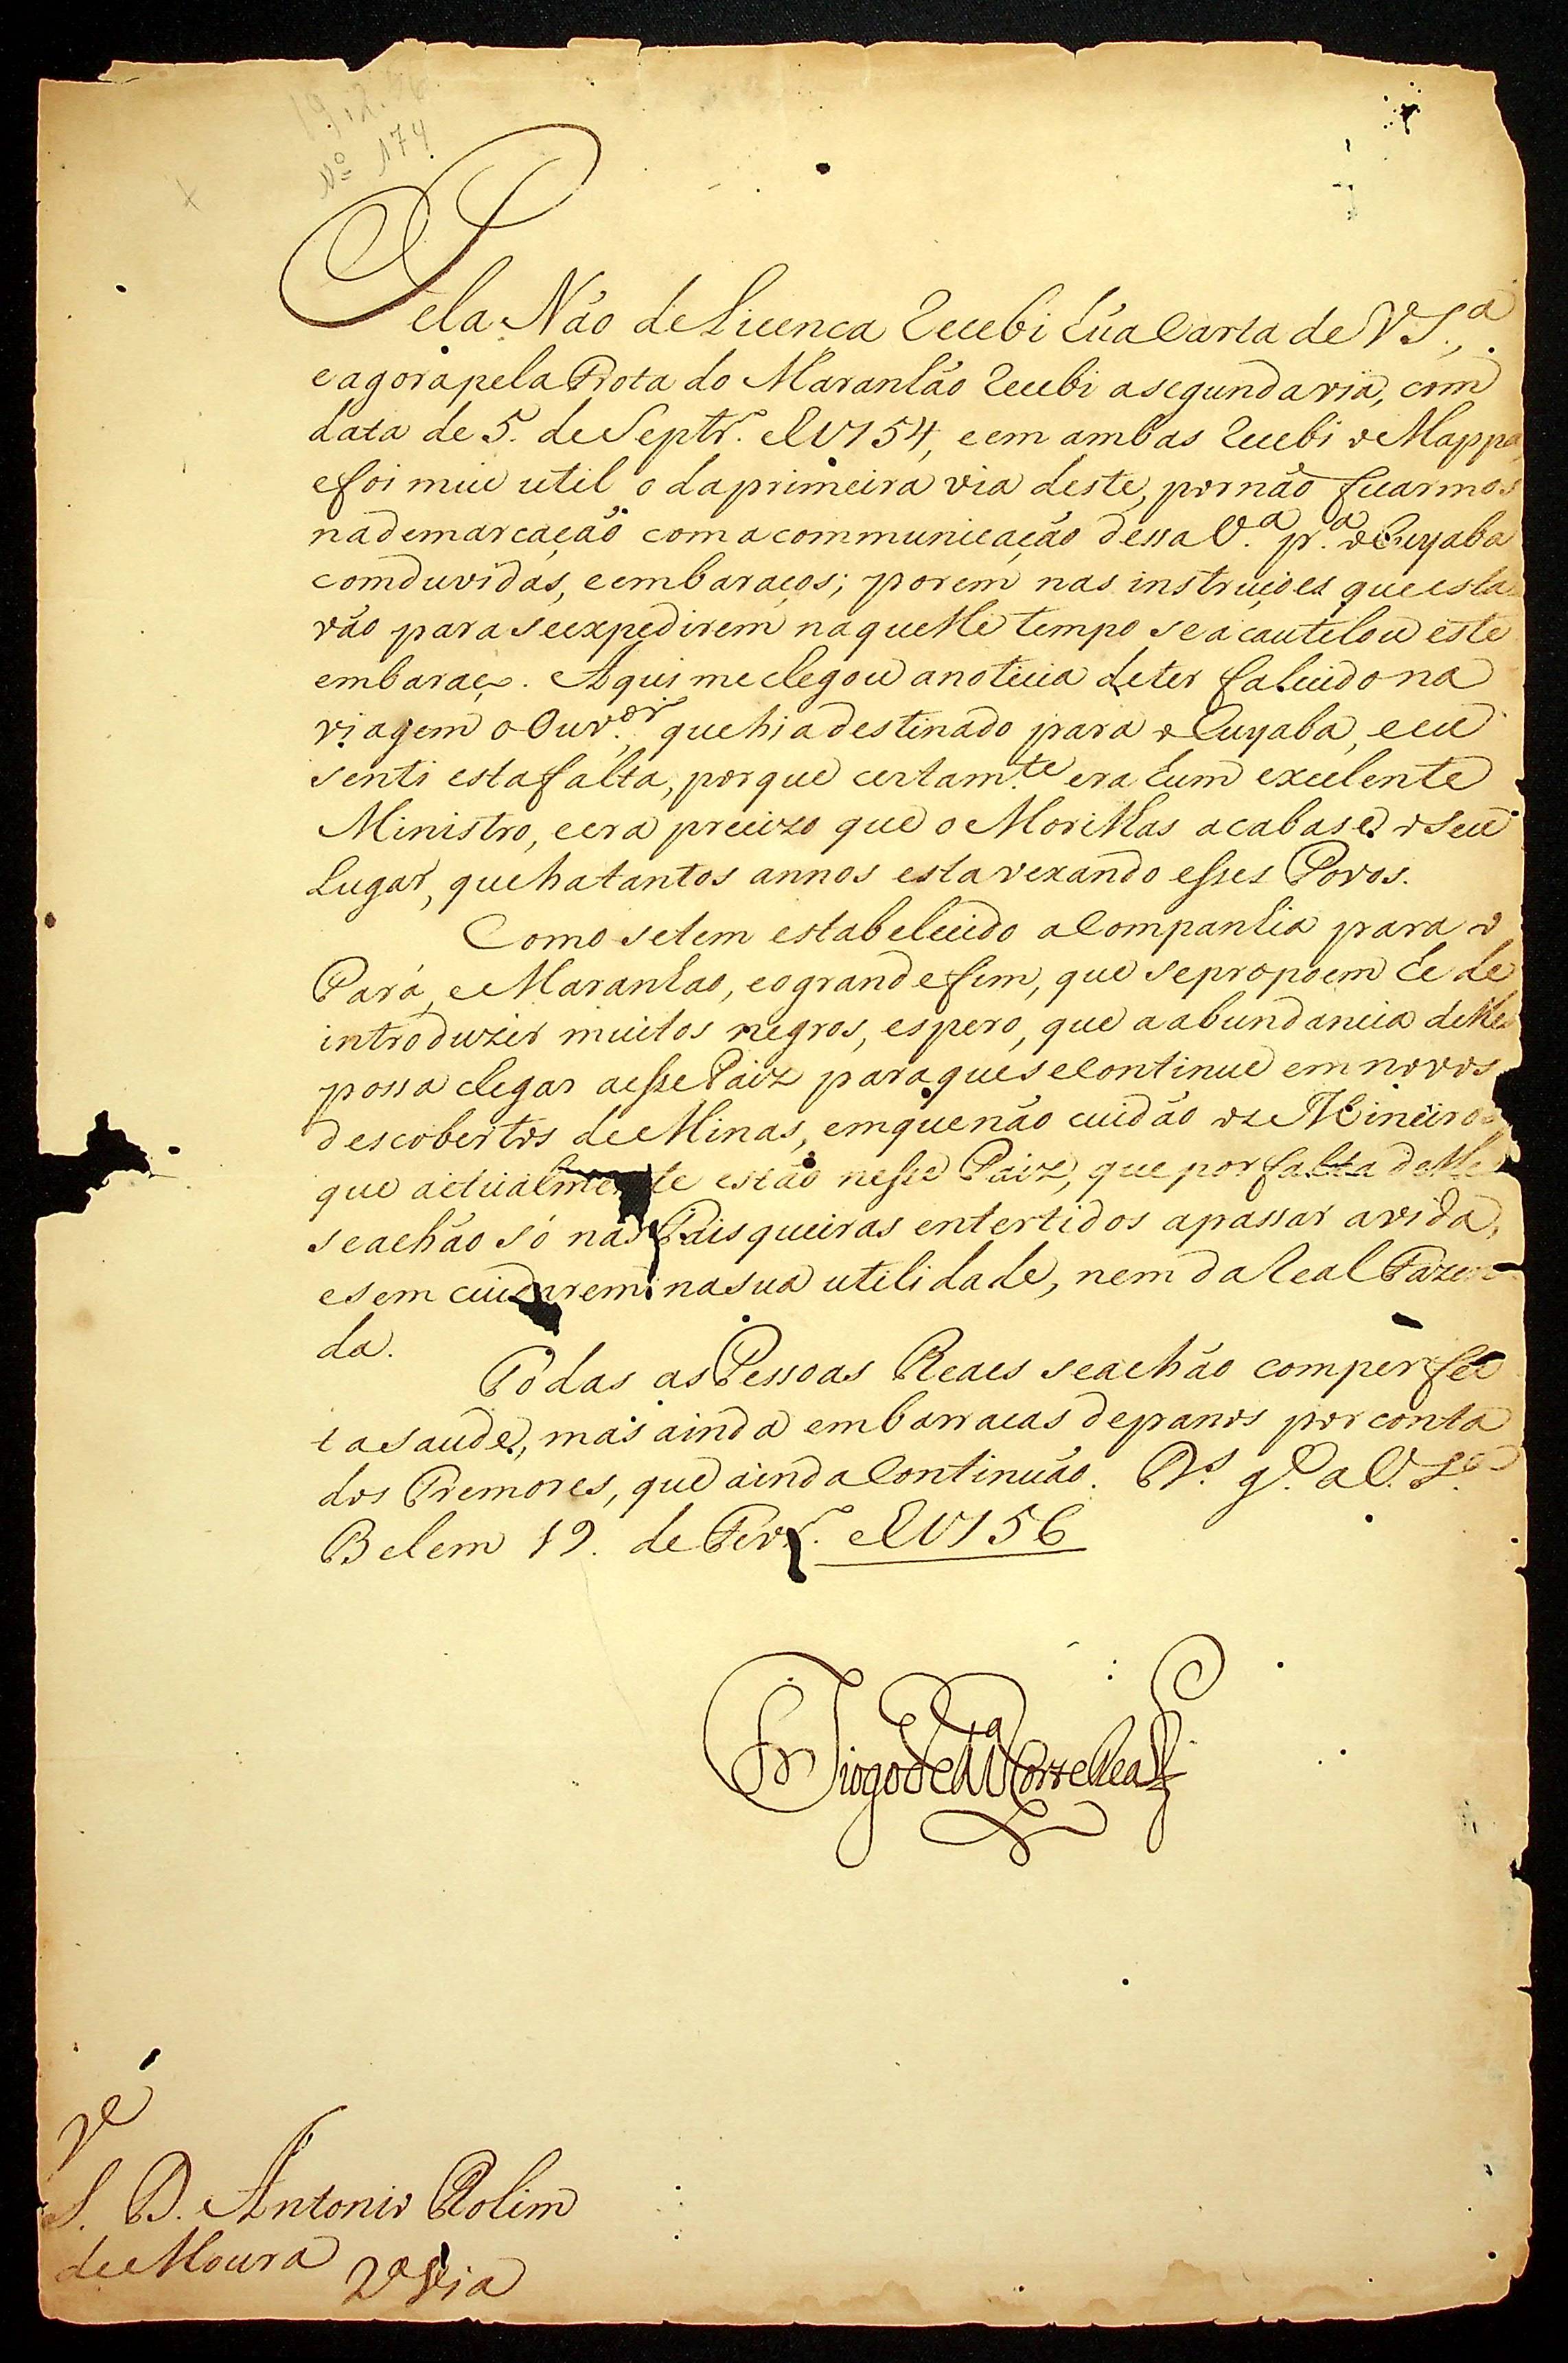 19.2.56
Nº 174
Pela Náo de Licenca recebi húa Carta de V S.ª,
e agora pela Frota do Maranhão recebi a segunda via, com
data de 5. de Septr.º de 1754, e em ambas recebi o Mappa,
e foi mui util o da primeira via deste, por não ficarmos
na demarcação com a communicação dessa V.ª p.ª o Cuyaba
com duvidas, e embaraços; porem nas instruições que esta
vão para se expedirem naquelle tempo se acautelou este
embaraço. Aqui me chegou a noticia de ter falicido na
viagem o Ouv.ºr, que hia destinado para o Cuyaba, e eu
senti esta falta, porque certam.te era hum excelente
Ministro, e era precizo que o Morilhas acabase o seu
Lugar, que ha tantos annos esta vexando esses Povos.
Como se tem estabelicido a Companhia para o
Pará, e Maranhao, e o grande fim, que se propoem he de
introduzir muitos negros, espero, que a abundancia delles
possa chegar a esse Paiz para que se continue em novos
descobertos de Minas, em que não cuidão os Mineiros
que actualmente estão nesse Paiz, que por falta delles
se achão só nas Faisqueiras entertidos a passar a vida,
e sem cuidarem na sua utilidade, nem da Real Fazen
da.
Todas as Pessoas Reaes se achão com perfei
ta saude, mas ainda em barracas de panos por conta
dos Tremores, que ainda continuão. D.s g.e a V. S.ª
Belem 19. de Fevr.º de 1756
Diogo de M.ça Corte Real
S. D. Antonio Rolim
de Moura 2ª Via